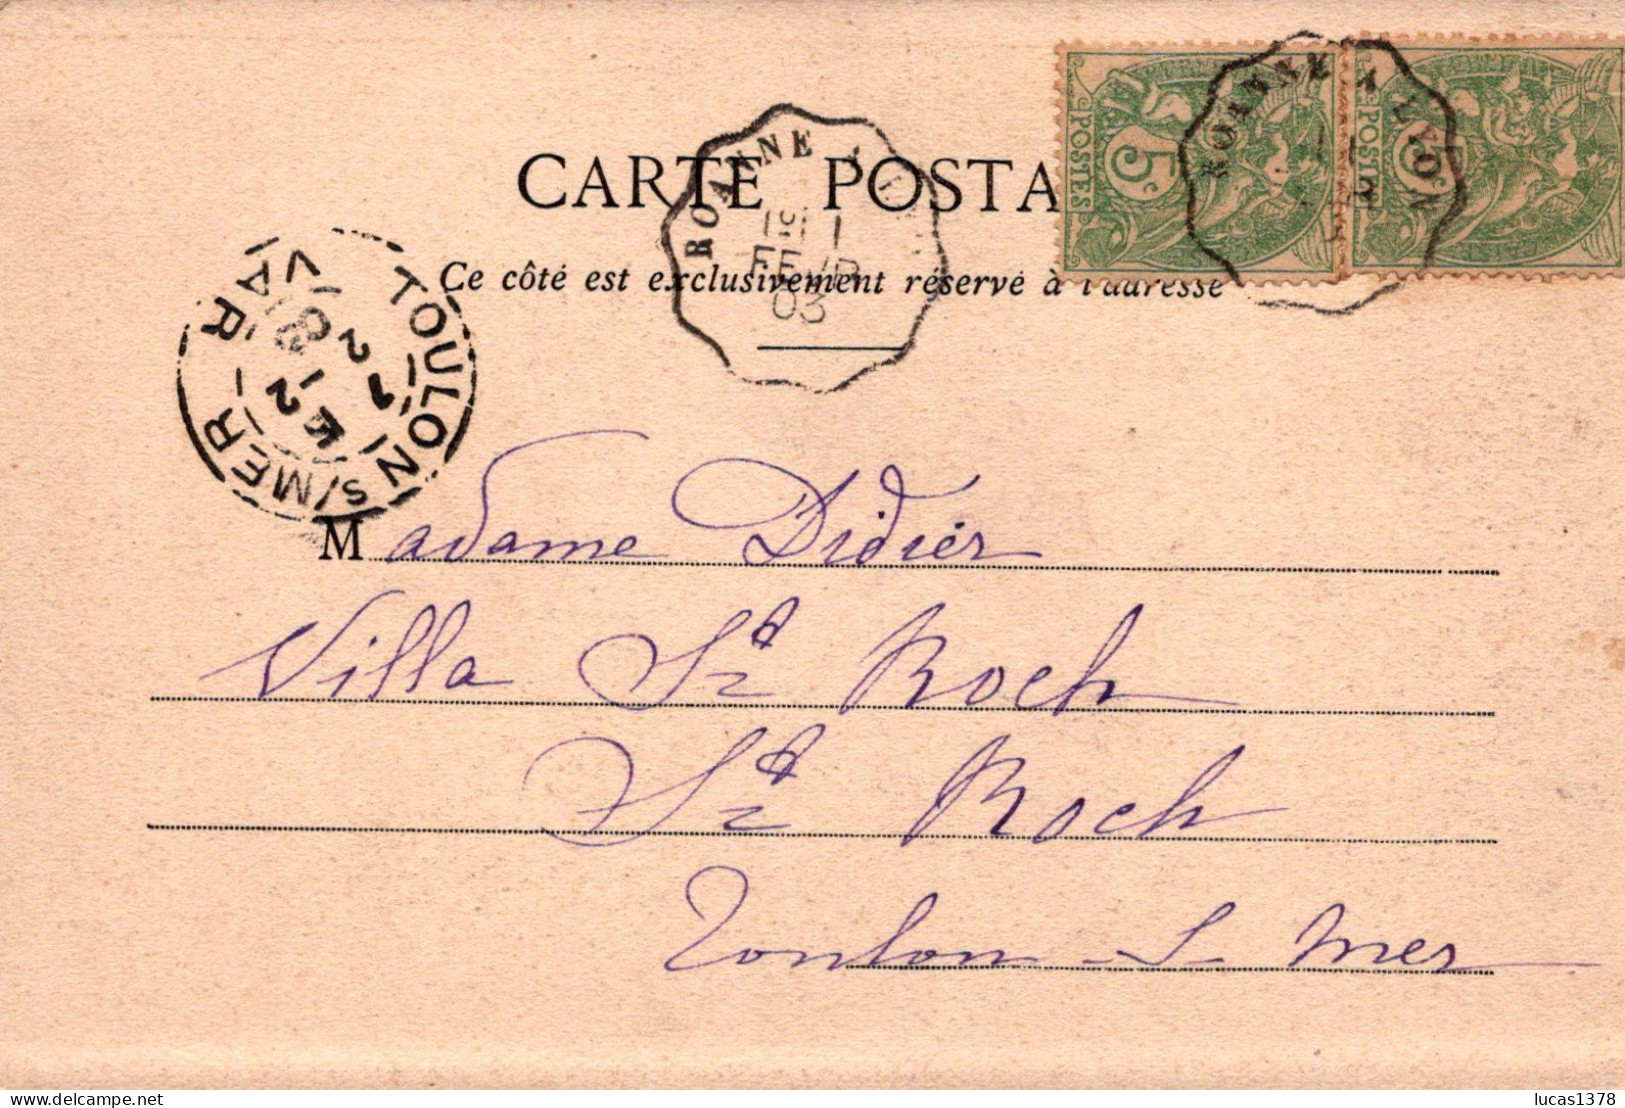 CARTE POSTA
Ce côté est exclusivement réservé à l'adresse
ROANNE
1
FEVR
03
POSTES
5c
ROANNE A LYON
POSTES
5c
TOULON S/MER - VAR
Madame Didier
Villa St Roch
St Roch
Toulon - S - Mer
delcampe.net
lucas1378